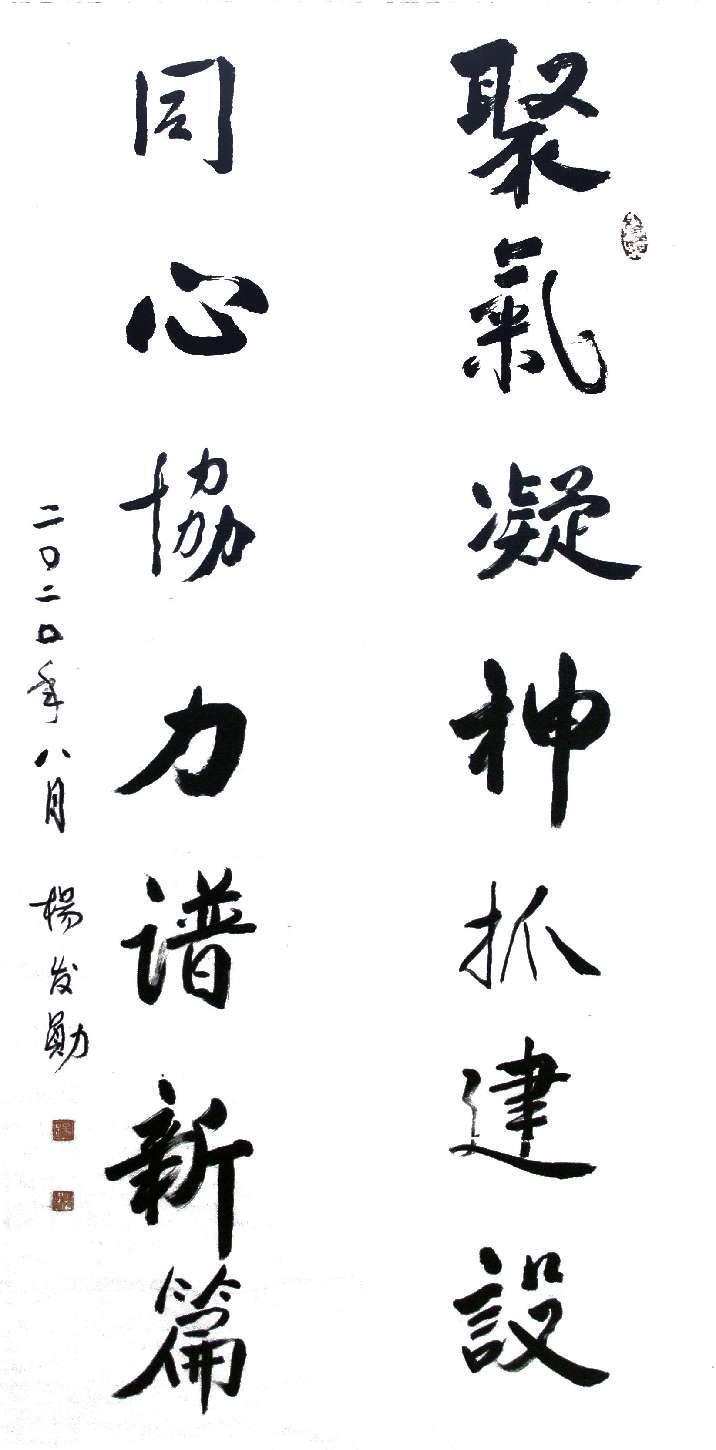 聚氣凝神抓建設
同心協力谱新篇
二〇二〇年八月 楊发勛